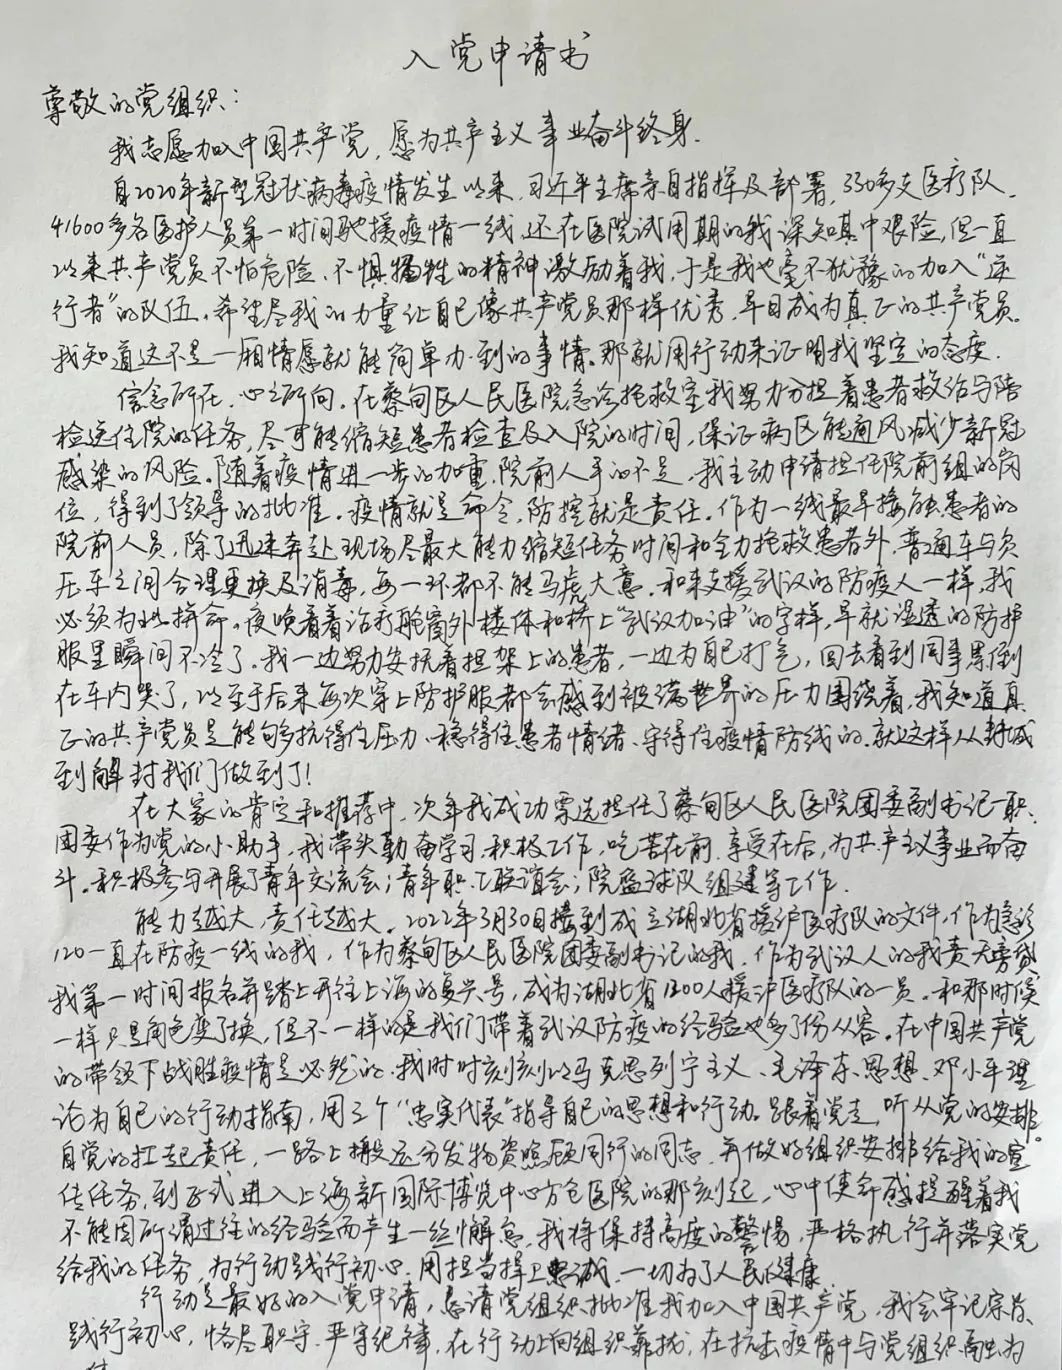 入党申请书
尊敬的党组织：
我志愿加入中国共产党，愿为共产主义事业奋斗终身.
自2020年新型冠状病毒疫情发生以来，习近平主席亲自指挥及部署，330多支医疗队，
41600多名医护人员第一时间驰援疫情一线，还在医院试用期的我深知其中艰险，但一直
以来共产党员不怕危险、不惧牺牲的精神激励着我，于是我也毫不犹豫的加入“逆
行者”的队伍。希望尽我的力量让自己像共产党员那样优秀，早日成为真正的共产党员。
我知道这不是一厢情愿就能简单办到的事情。那就用行动来证明我坚定的态度.
信念所在，心之所向。在蔡甸区人民医院急诊抢救室我努力分担着患者救治与陪
检送住院的任务，尽可能缩短患者检查及入院的时间，保证病区能通风减少新冠
感染的风险。随着疫情进一步的加重，院前人手的不足，我主动申请担任院前组的岗
位，得到了领导的批准。疫情就是命令，防控就是责任。作为一线最早接触患者的
院前人员，除了迅速奔赴现场尽最大能力缩短任务时间和全力抢救患者外，普通车与负
压车之间合理更换及消毒，每一环都不能马虎大意。和来支援武汉的防疫人一样，我
必须为此拼命。夜晚看着治疗舱窗外楼体和桥上“武汉加油”的字样，早就湿透的防护
服里瞬间不冷了。我一边努力安抚着担架上的患者，一边为自己打气，回去看到同事累倒
在车内哭了，以至于后来每次穿上防护服都会感到被满世界的压力围绕着，我知道真
正的共产党员是能够抗得住压力、稳得住患者情绪、守得住疫情防线的.就这样从封城
到解封我们做到了！
在大家的肯定和推荐中，次年我成功票选担任了蔡甸区人民医院团委副书记一职，
团委作为党的小助手，我带头勤奋学习，积极工作，吃苦在前，享受在后，为共产主义事业而奋
斗。积极参与开展了青年交流会；青年职工联谊会；院篮球队组建等工作.
能力越大，责任越大。2022年3月30日接到成立湖北省援沪医疗队的文件，作为急诊
120一直在防疫一线的我，作为蔡甸区人民医院团委副书记的我，作为武汉人的我责无旁贷
我第一时间报名并踏上开往上海的复兴号，成为湖北省1200人援沪医疗队的一员。和那时候
一样只是角色变了换，但不一样的是我们带着武汉防疫的经验也多了份从容。在中国共产党
的带领下战胜疫情是必然的.我时时刻刻以马克思列宁主义、毛泽东思想、邓小平理
论为自己的行动指南，用三个“忠实代表”指导自己的思想和行动。跟着党走，听从党的安排。
自觉的扛起责任，一路上搬运分发物资照顾同行的同志，并做好组织安排给我的宣
传任务，到正式进入上海新国际博览中心方仓医院的那刻起，心中使命感提醒着我
不能因所谓过往的经验而产生一丝懈怠。我将保持高度的警惕，严格执行并落实党
给我的任务，为行动践行初心，用担当捍卫忠诚，一切为了人民健康.
行动是最好的入党申请，恳请党组织批准我加入中国共产党，我会牢记宗旨、
践行初心，恪尽职守，严守纪律，在行动上向组织靠拢，在抗击疫情中与党组织融为
一体